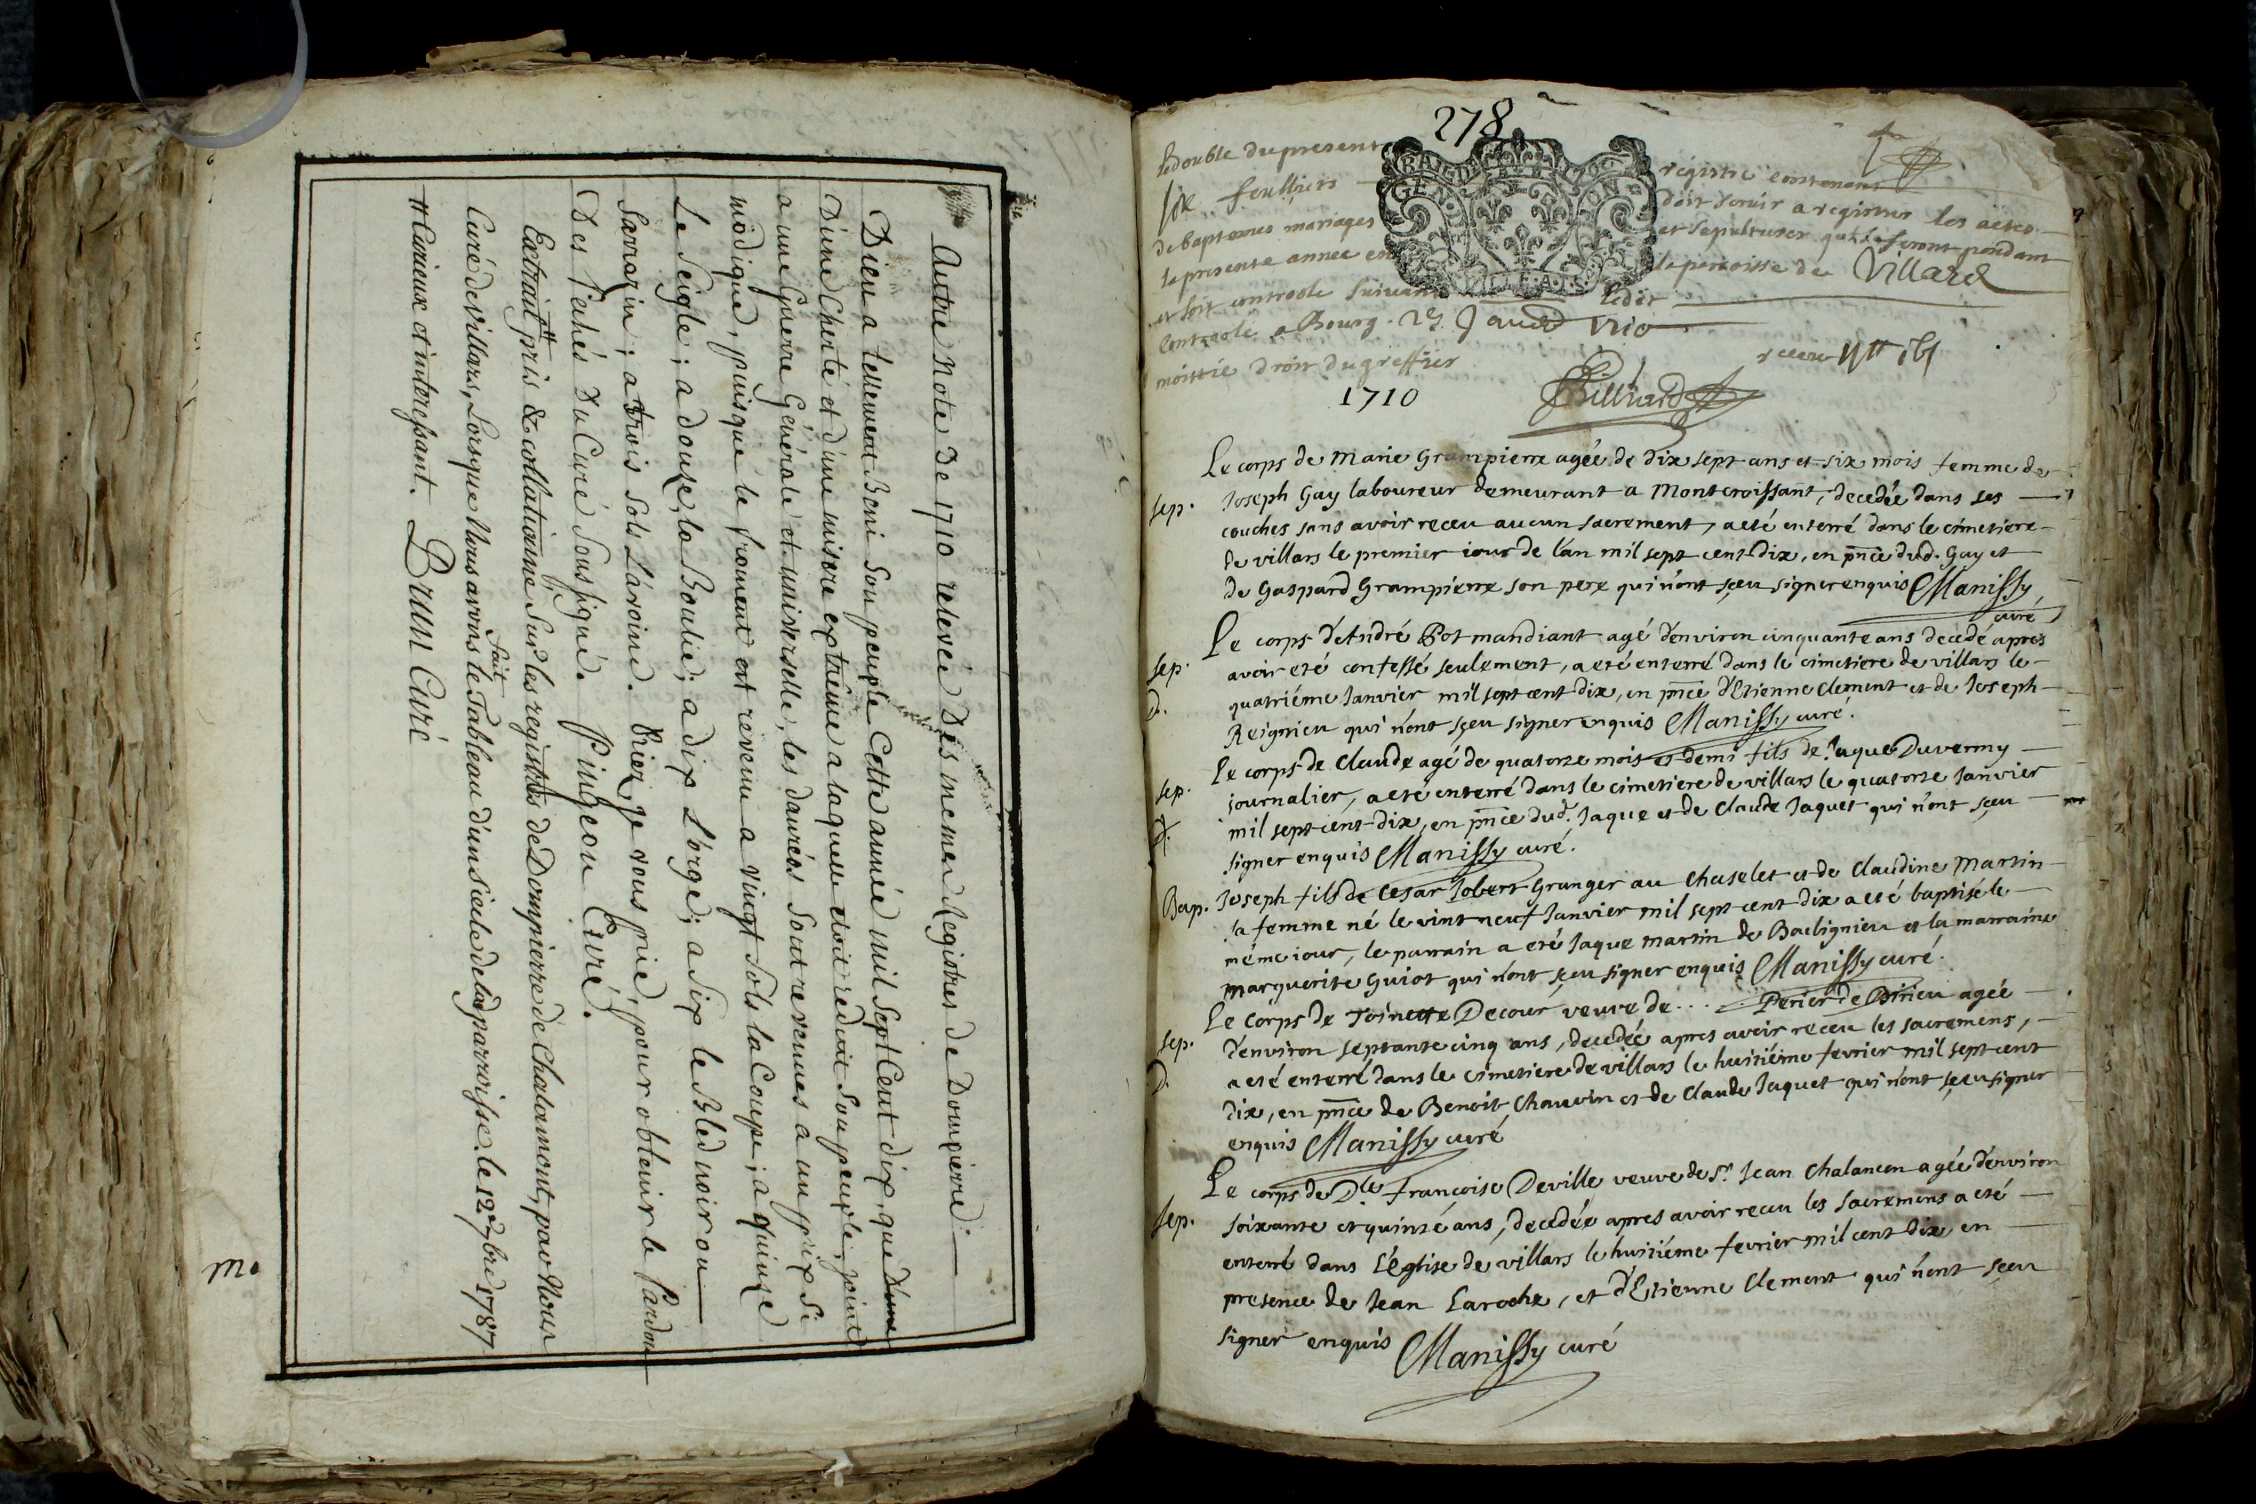 Autre Note de 1710 relevée des memes Registres de Dompierre
Dieu a tellement Beni Son peuple Cette année mil Sept Cent dix, que D'une
D'une Cherté et d'une misere extrême a laquelle etoit reduit Son peuple, joint
a une Guerre Générale et universelle, les danrées Sont revenues a un prix Si
modique, puisque le froment est revenu a vingt Sols la Coupe; a quinze
Le Seigle; a douze, la Boulie; a dix L'orge; a Six le Bled noir ou
Sarrazin; a trois Sols L'avoine. Priez, je vous prie, pour obtenir le Pardon
Des Pechés Du Curé Sous signé. Pingeon Curé.
Extrait pris & collationné Sur les registres de Dompierre de Chalamont, par Nous
Curé de Villars, Lorsque Nous avons fait le Tableau d'un Siecle de lad parroisse. le 12e 7bre 1787
Curieux et interessant. Brun Curé
m.
278
le double du present registre contenant
six feulliets doit servir a registrer les actes
de baptemes mariages et sepultures qui se feront pendant
la presente annee en la paroisse de Villard
et soit controole suivant ledit
Controolé a Bourg. 27 Janv 1710
moittié droit du greffier receu
1710 Billiard
Le corps de Marie Grampierre agée de Dix sept ans et six mois femme de
sep. Joseph Gay laboureur demeurant a Montcroissant, decedée dans ses
couches sans avoir receu aucun sacrement, a eté enterré dans le cimetiere
de villars le premier iour de l'an mil sept cent dix, en pnce dud. Gay et
de Gaspard Grampierre son pere qui n'ont sçeu signer enquis Manissy
curé
Le corps d'André Bot mandiant agé d'environ cinquante ans decede apres
sep. avoir eté confessé seulement, a eté enterré dans le cimetiere de villars le
D. quatriéme Janvier mil sept cent dix, en pnce d'Etienne Clement et de Joseph
Reignieu qui n'ont sçeu signer enquis Manissy curé.
Le corps de Claude agé de quatorze mois et demi fils de Jaque Duverny
sep. journalier, a eté enterré dans le cimetiere de villars le quatorze Janvier
D. mil sept cent dix, en pnce dud. Jaque et de Claude Jaquet qui n'ont sçeu
signer enquis Manissy curé.
Bap. Joseph fils de Cesar Jobert Granger au Chaselet et de Claudine Martin
sa femme né le vint neuf Janvier mil sept cent dix a eté baptisé le
méme iour, le parrain a eté Jaque Martin de Boulignieu et la marraine
Marguerite Guiot qui n'ont sçeu signer enquis Manissy curé.
Le Corps de Toinette Decour veuve de ... Perier de Birieu agée
sep. d'environ septante cinq ans, decedée apres avoir receu les sacremens,
D. a eté enterré dans le cimetiere de villars le huitiéme fevrier mil sept cent
dix, en pnce de Benoit Chauvin et de Claude Jaquet qui n'ont sçeu signer
enquis Manissy curé
Le corps de Dlle Francoise Deville veuve de Sr. Jean Chalancon agée d'environ
sep. soixante et quinze ans, decedée apres avoir receu les sacremens a eté
enterré dans L'église de villars le huitiéme fevrier mil cent dix en
presence de Jean Laroche, et d'Etienne Clement qui n'ont sçeu
signer enquis Manissy curé